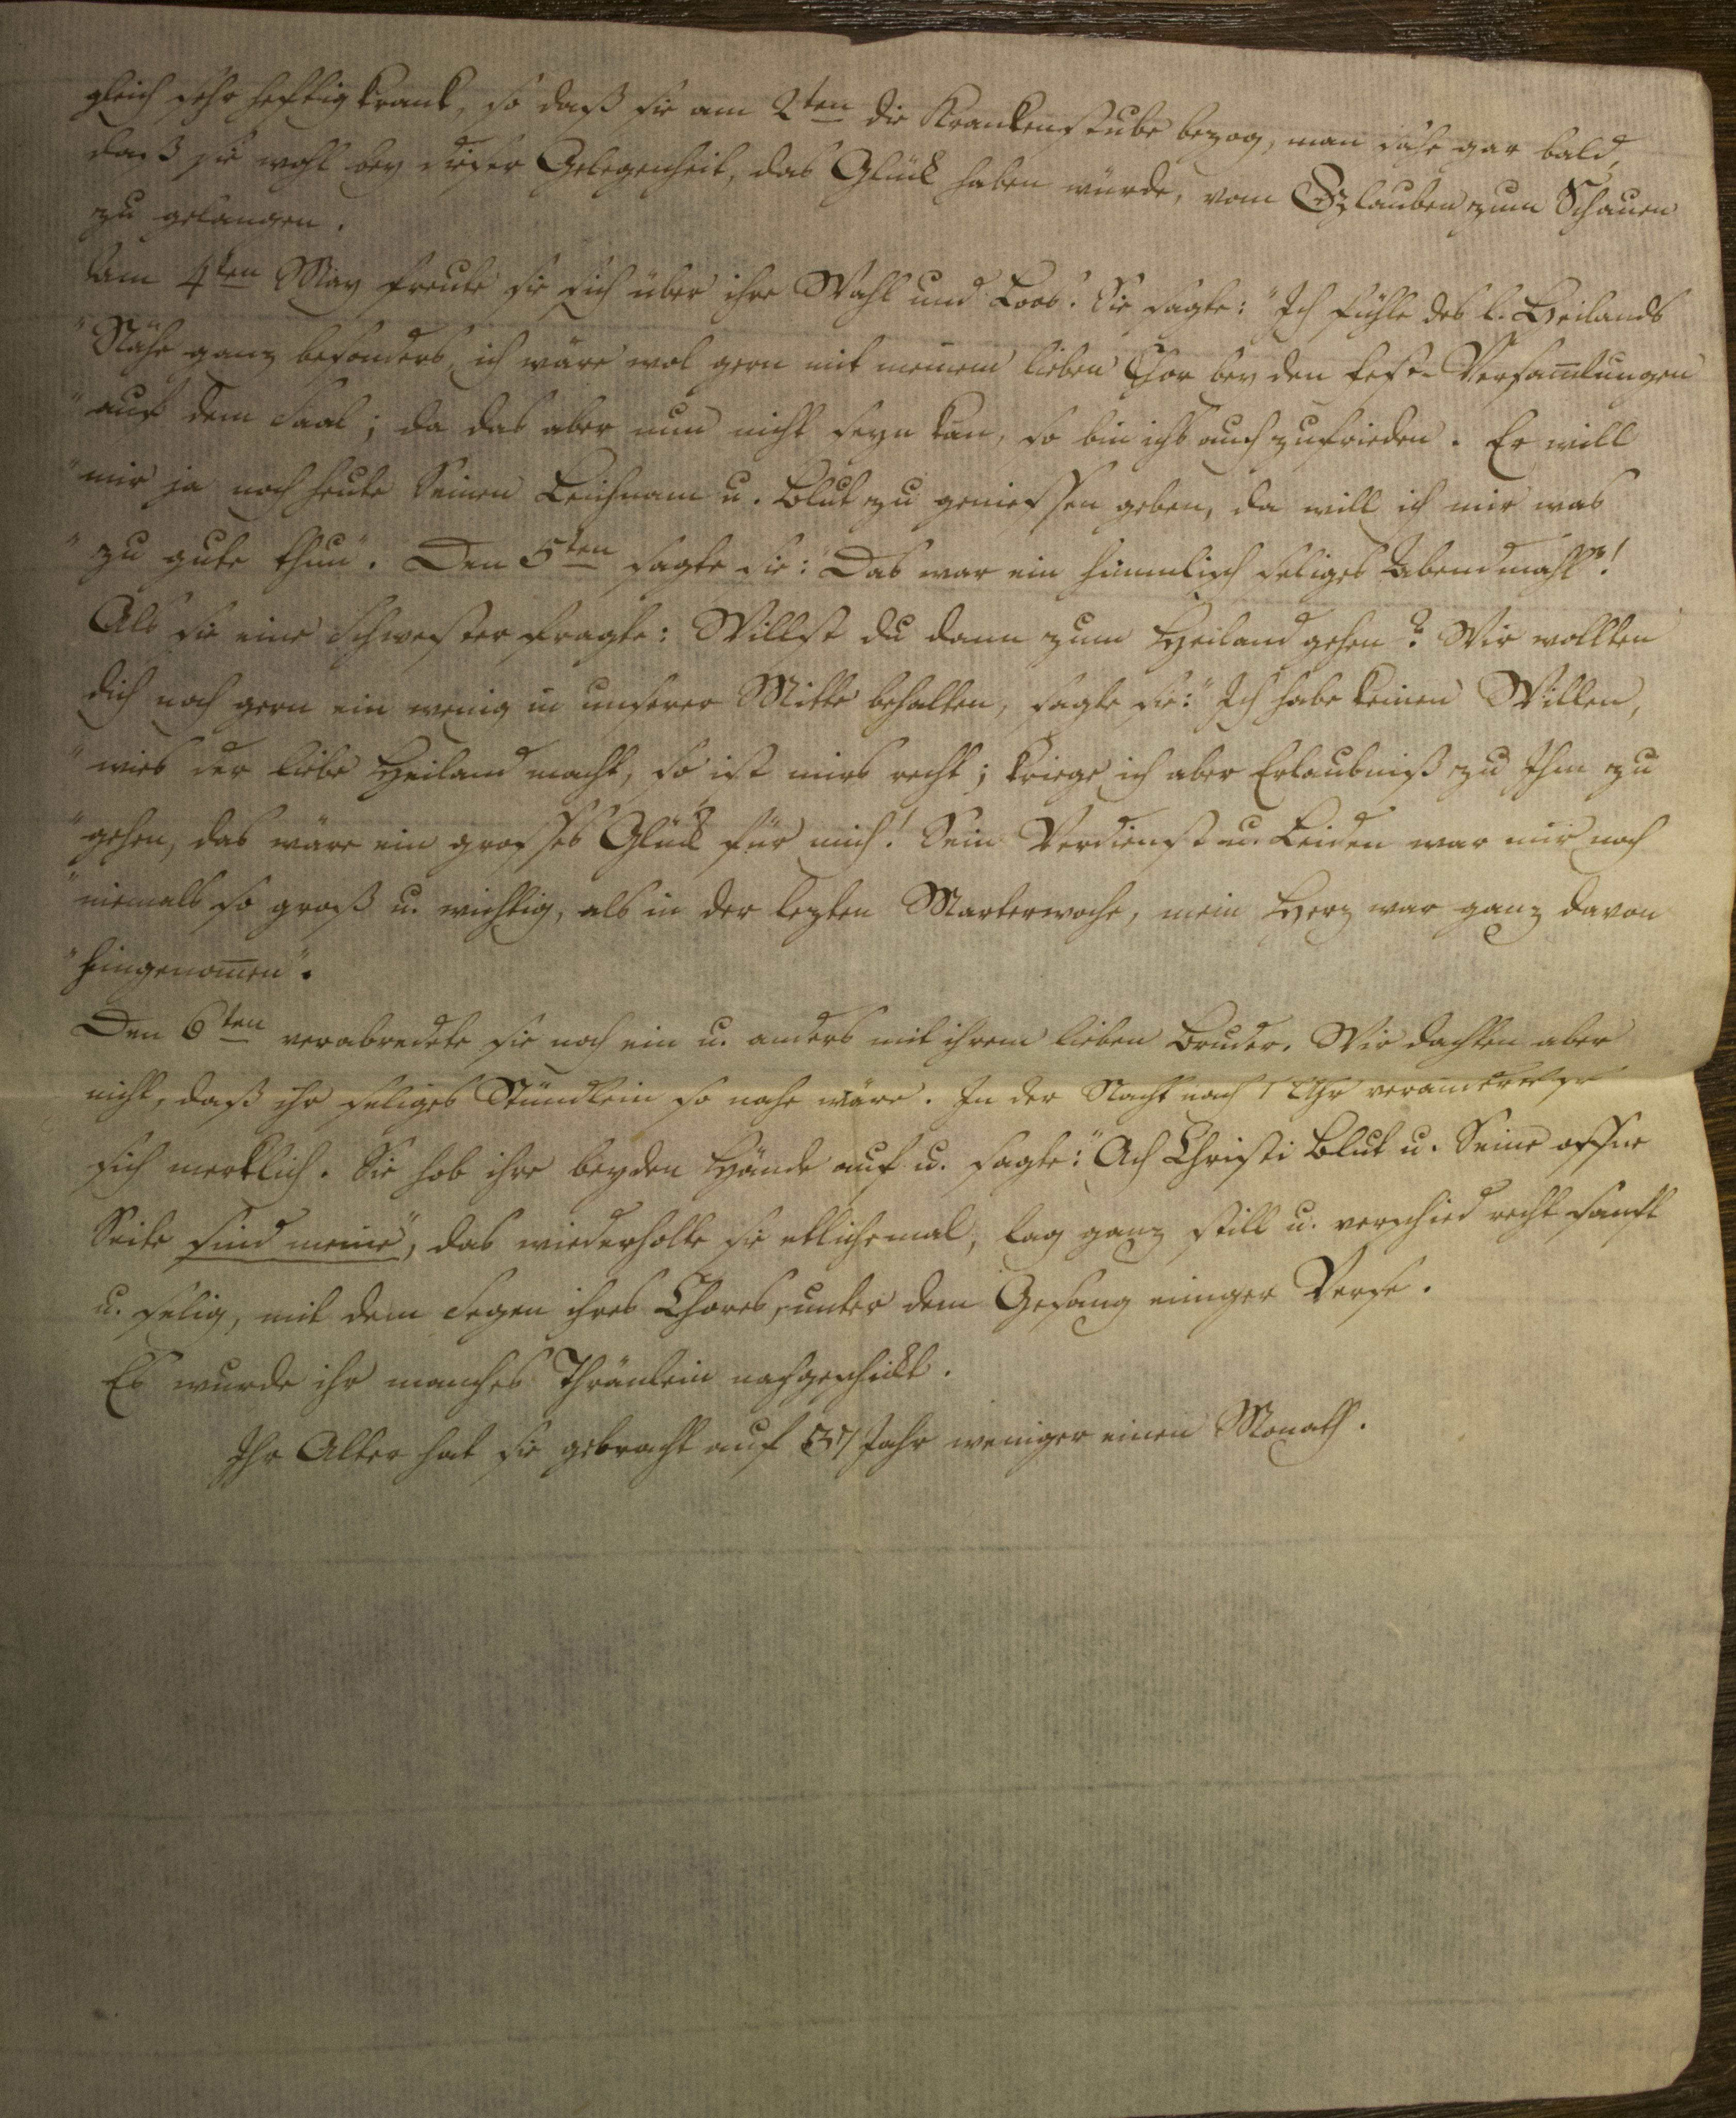 gleich sehr heftig krank, so daß sie am 2ten die Krankenstube bezog, man sahe gar bald,
daß sie wohl bey dieser Gelegenheit, das Glück haben würde, vom Glauben zum Schauen
zu gelangen.
Am 4ten May freute sie sich über ihre Wahl und Loos. Sie sagte: "Ich fühle des l. Heilands
"Nähe ganz besonders, ich wäre wol gern mit meinem lieben Chor bey den Fest-Versam̅lungen
"auf dem Saal; da das aber nun nicht seyn kan, so bin ichs auch zufrieden. Er will
"mir ja noch heute Seinen Leichnam u. Blut zu geniessen geben, da will ich mir was
"zu gute thun". Den 5ten sagte sie: "Das war ein himmlisch seliges Abendmahl"!
Als sie eine Schwester fragte: Willst du dann zum Heiland gehen? Wir wollten
dich noch gern ein wenig in unserer Mitte behalten, sagte sie: "Ich habe keinen Willen,
"wies der liebe Heiland macht, so ist mirs recht; kriege ich aber Erlaubniß zu Ihm zu
"gehen, das wäre ein grosses Glück für mich! Sein Verdienst u. Leiden war mir noch
"niemals so groß u. wichtig, als in der lezten Marterwoche, mein Herz war ganz davon
"hingenom̅en".
Den 6ten verabredete sie noch ein u. anders mit ihrem lieben Bruder. Wir dachten aber
nicht, daß ihr seliges Stündlein so nahe wäre. In der Nacht nach 1 Uhr veränderte sie
sich merklich. Sie hob ihre beyden Hände auf u. sagte: "Ach Christi Blut u. Seine offne
Seite sind meine", das wiederholte sie etlichemal, lag ganz still u. verschied recht sanft
u. selig, mit dem Segen ihres Chores, unter dem Gesang einiger Verse.
Es wurde ihr manches Thränlein nachgeschickt.
Ihr Alter hat sie gebracht auf 37 Jahr weniger einen Monath.